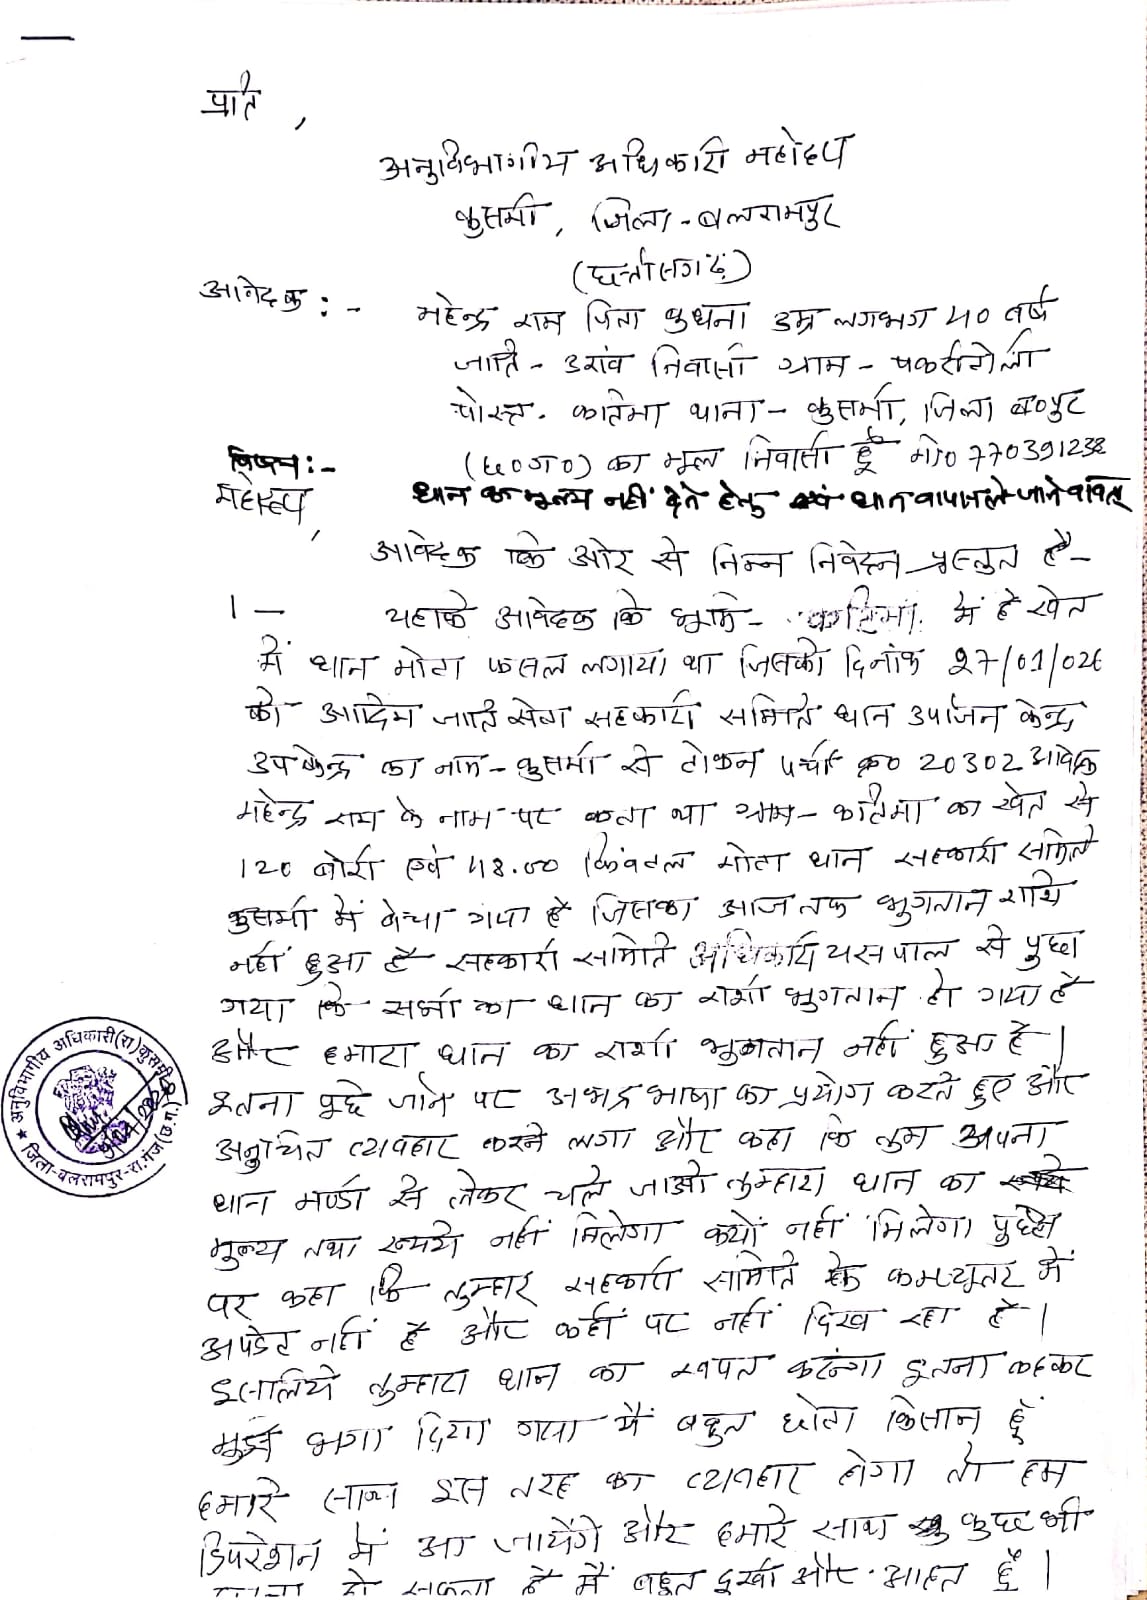 प्रति,
अनुविभागीय अधिकारी महोदय
कुसमी, जिला-बलरामपुर
(छत्तीसगढ़)
आवेदक :- महेन्द्र राम पिता बुधना उम्र लगभग 40 वर्ष
जाति- उरांव निवासी ग्राम-
पोस्ट- कातिमा थाना- कुसमी, जिला ब०पुर
(छ०ग०) का मूल निवासी हूँ मो० 770391238
विषय:- धान का मूल्य नहीं देने हेतु एवं धान वापस ले जाने बावत्
महोदय,
आवेदक कि ओर से निम्न निवेदन प्रस्तुत है-
1- यहाके आवेदक कि भूमि- में है खेत
में धान मोटा फसल लगाया था जिसको दिनांक 27/01/026
को आदिम जाति सेवा सहकारी समिति धान उपार्जन केन्द्र
उपकेन्द्र का नाम-कुसमी से टोकन पर्ची क्र० 20302 आवेदक
महेन्द्र राम के नाम पर कटा था ग्राम- कातिमा का खेत से
120 बोरी एवं 48.00 क्विंटल मोटा धान सहकारी समिति
कुसमी में बेचा गया है जिसका आज तक भुगतान राशि
नहीं हुआ है सहकारी समिति अधिकारी यसपाल से पुछा
गया कि सभी का धान का राशी भुगतान हो गया है
और हमारा धान का राशी भुगतान नहीं हुआ है।
इतना पुछे जाने पर अभद्र भाषा का प्रयोग करते हुए और
अनुचित व्यवहार करने लगा और कहा कि तुम अपना
धान मण्डी से लेकर चले जाओ तुम्हारा धान का
मुल्य तथा रूपये नहीं मिलेगा क्यों नहीं मिलेगा पुछने
पर कहा कि तुम्हार सहकारी समिति के कम्प्यूटर में
अपडेट नहीं है और कहीं पर नहीं दिख रहा है।
इसलिये तुम्हारा धान का करूंगा इतना कहकर
मुझे भगा दिया गया मैं बहुत छोटा किसान हूँ
हमारे साथ इस तरह का व्यवहार होगा तो हम
डिपरेशन में आ जायेंगे और हमारे साथ कुछ भी
हो सकता है मैं बहुत दुखी और आहत हूँ।
अनुविभागीय अधिकारी(रा)कुसमी
जिला-बलरामपुर-रा.गंज(छ.ग.)